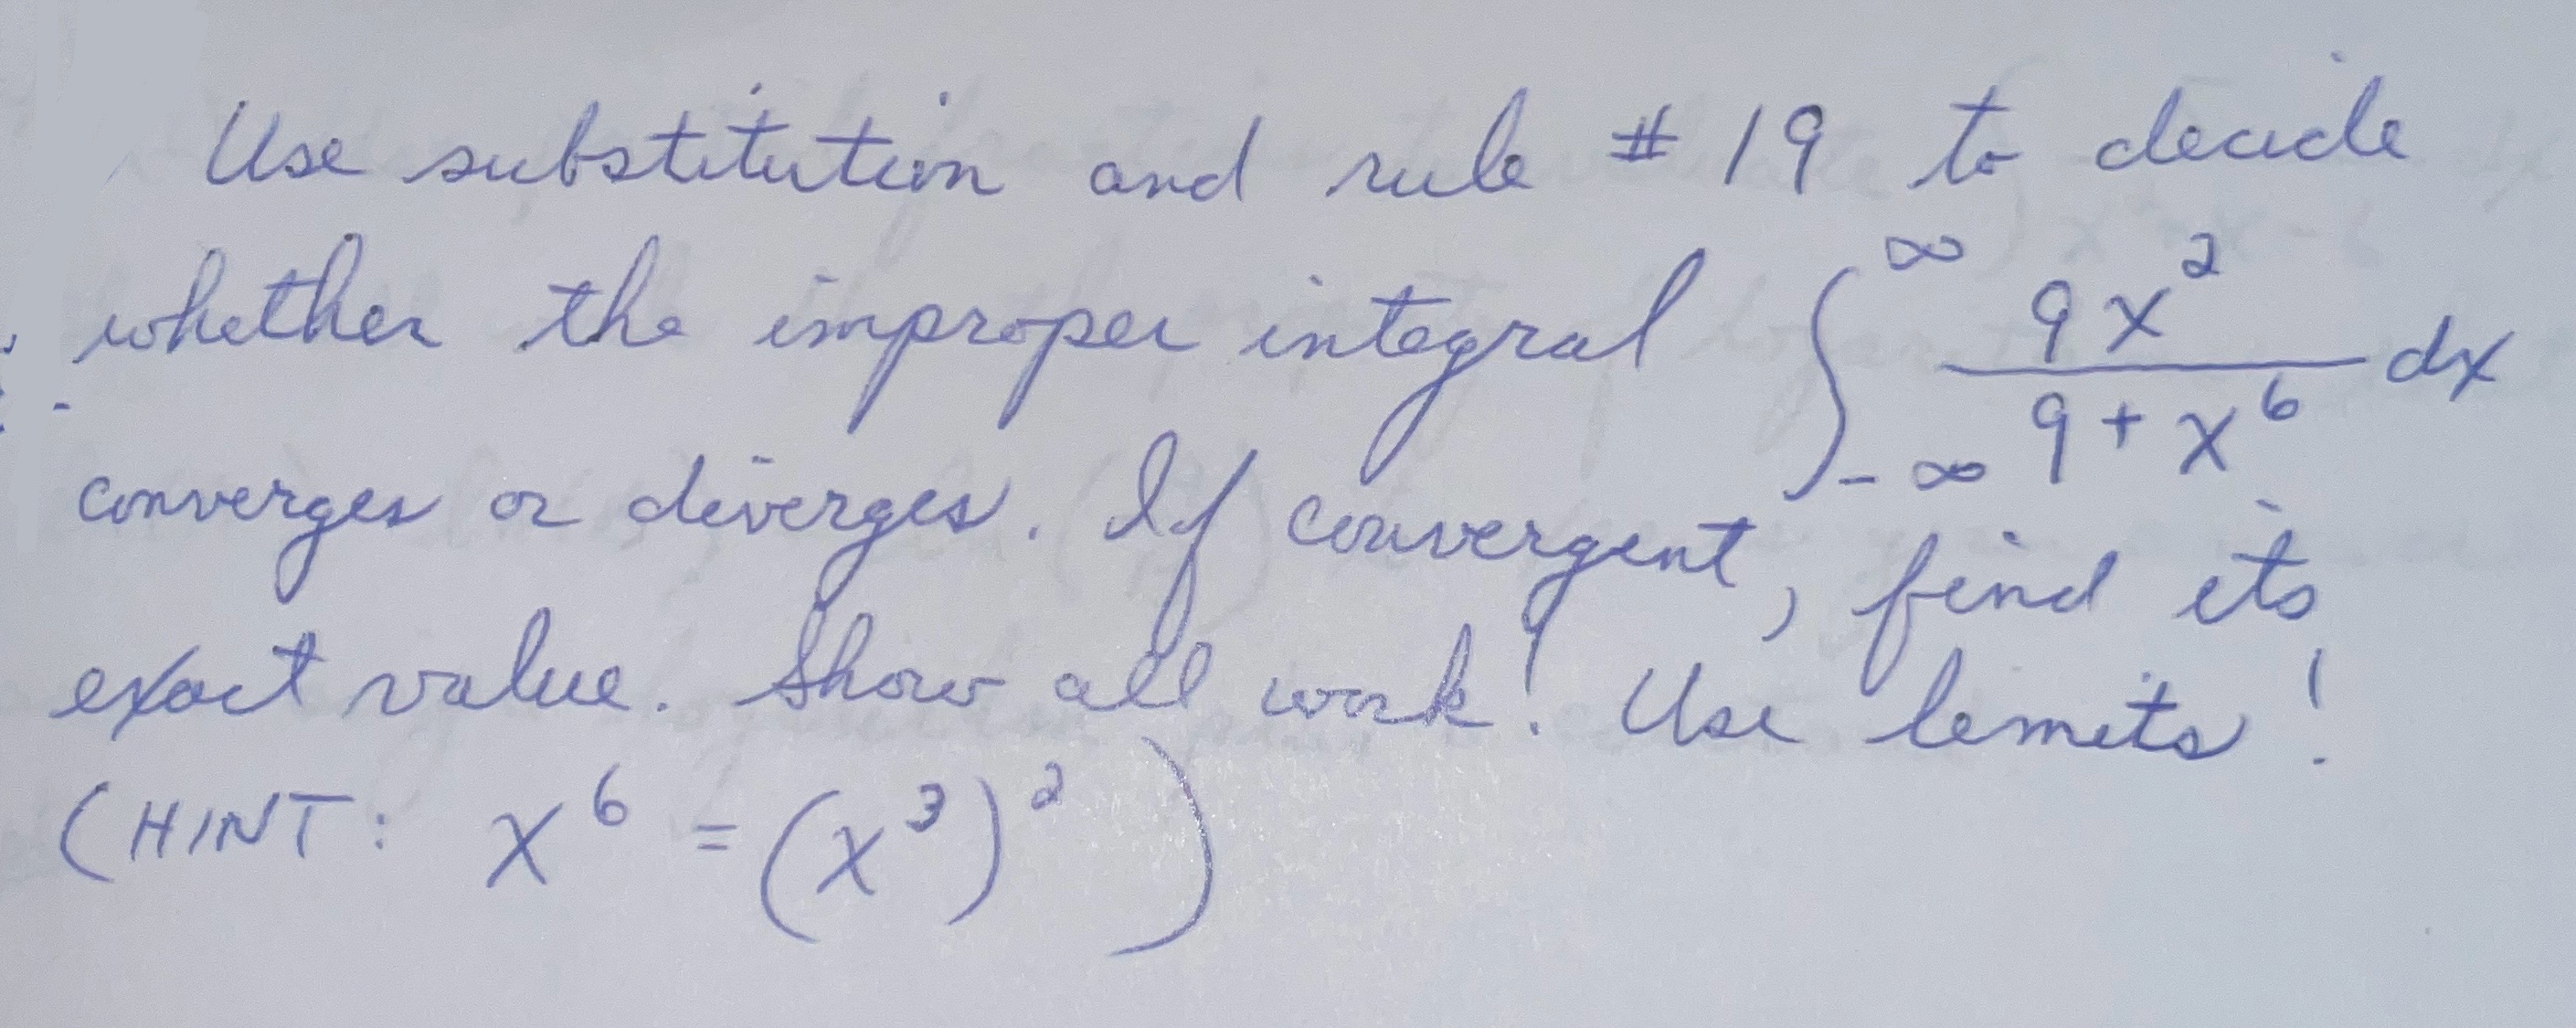 Use substitution and rule # 19 to decide
whether the improper integral ∫_{-∞}^{∞} 9x² / (9 + x⁶) dx
converges or diverges. If convergent, find its
exact value. Show all work! Use limits!
(HINT: x⁶ = (x³)²)